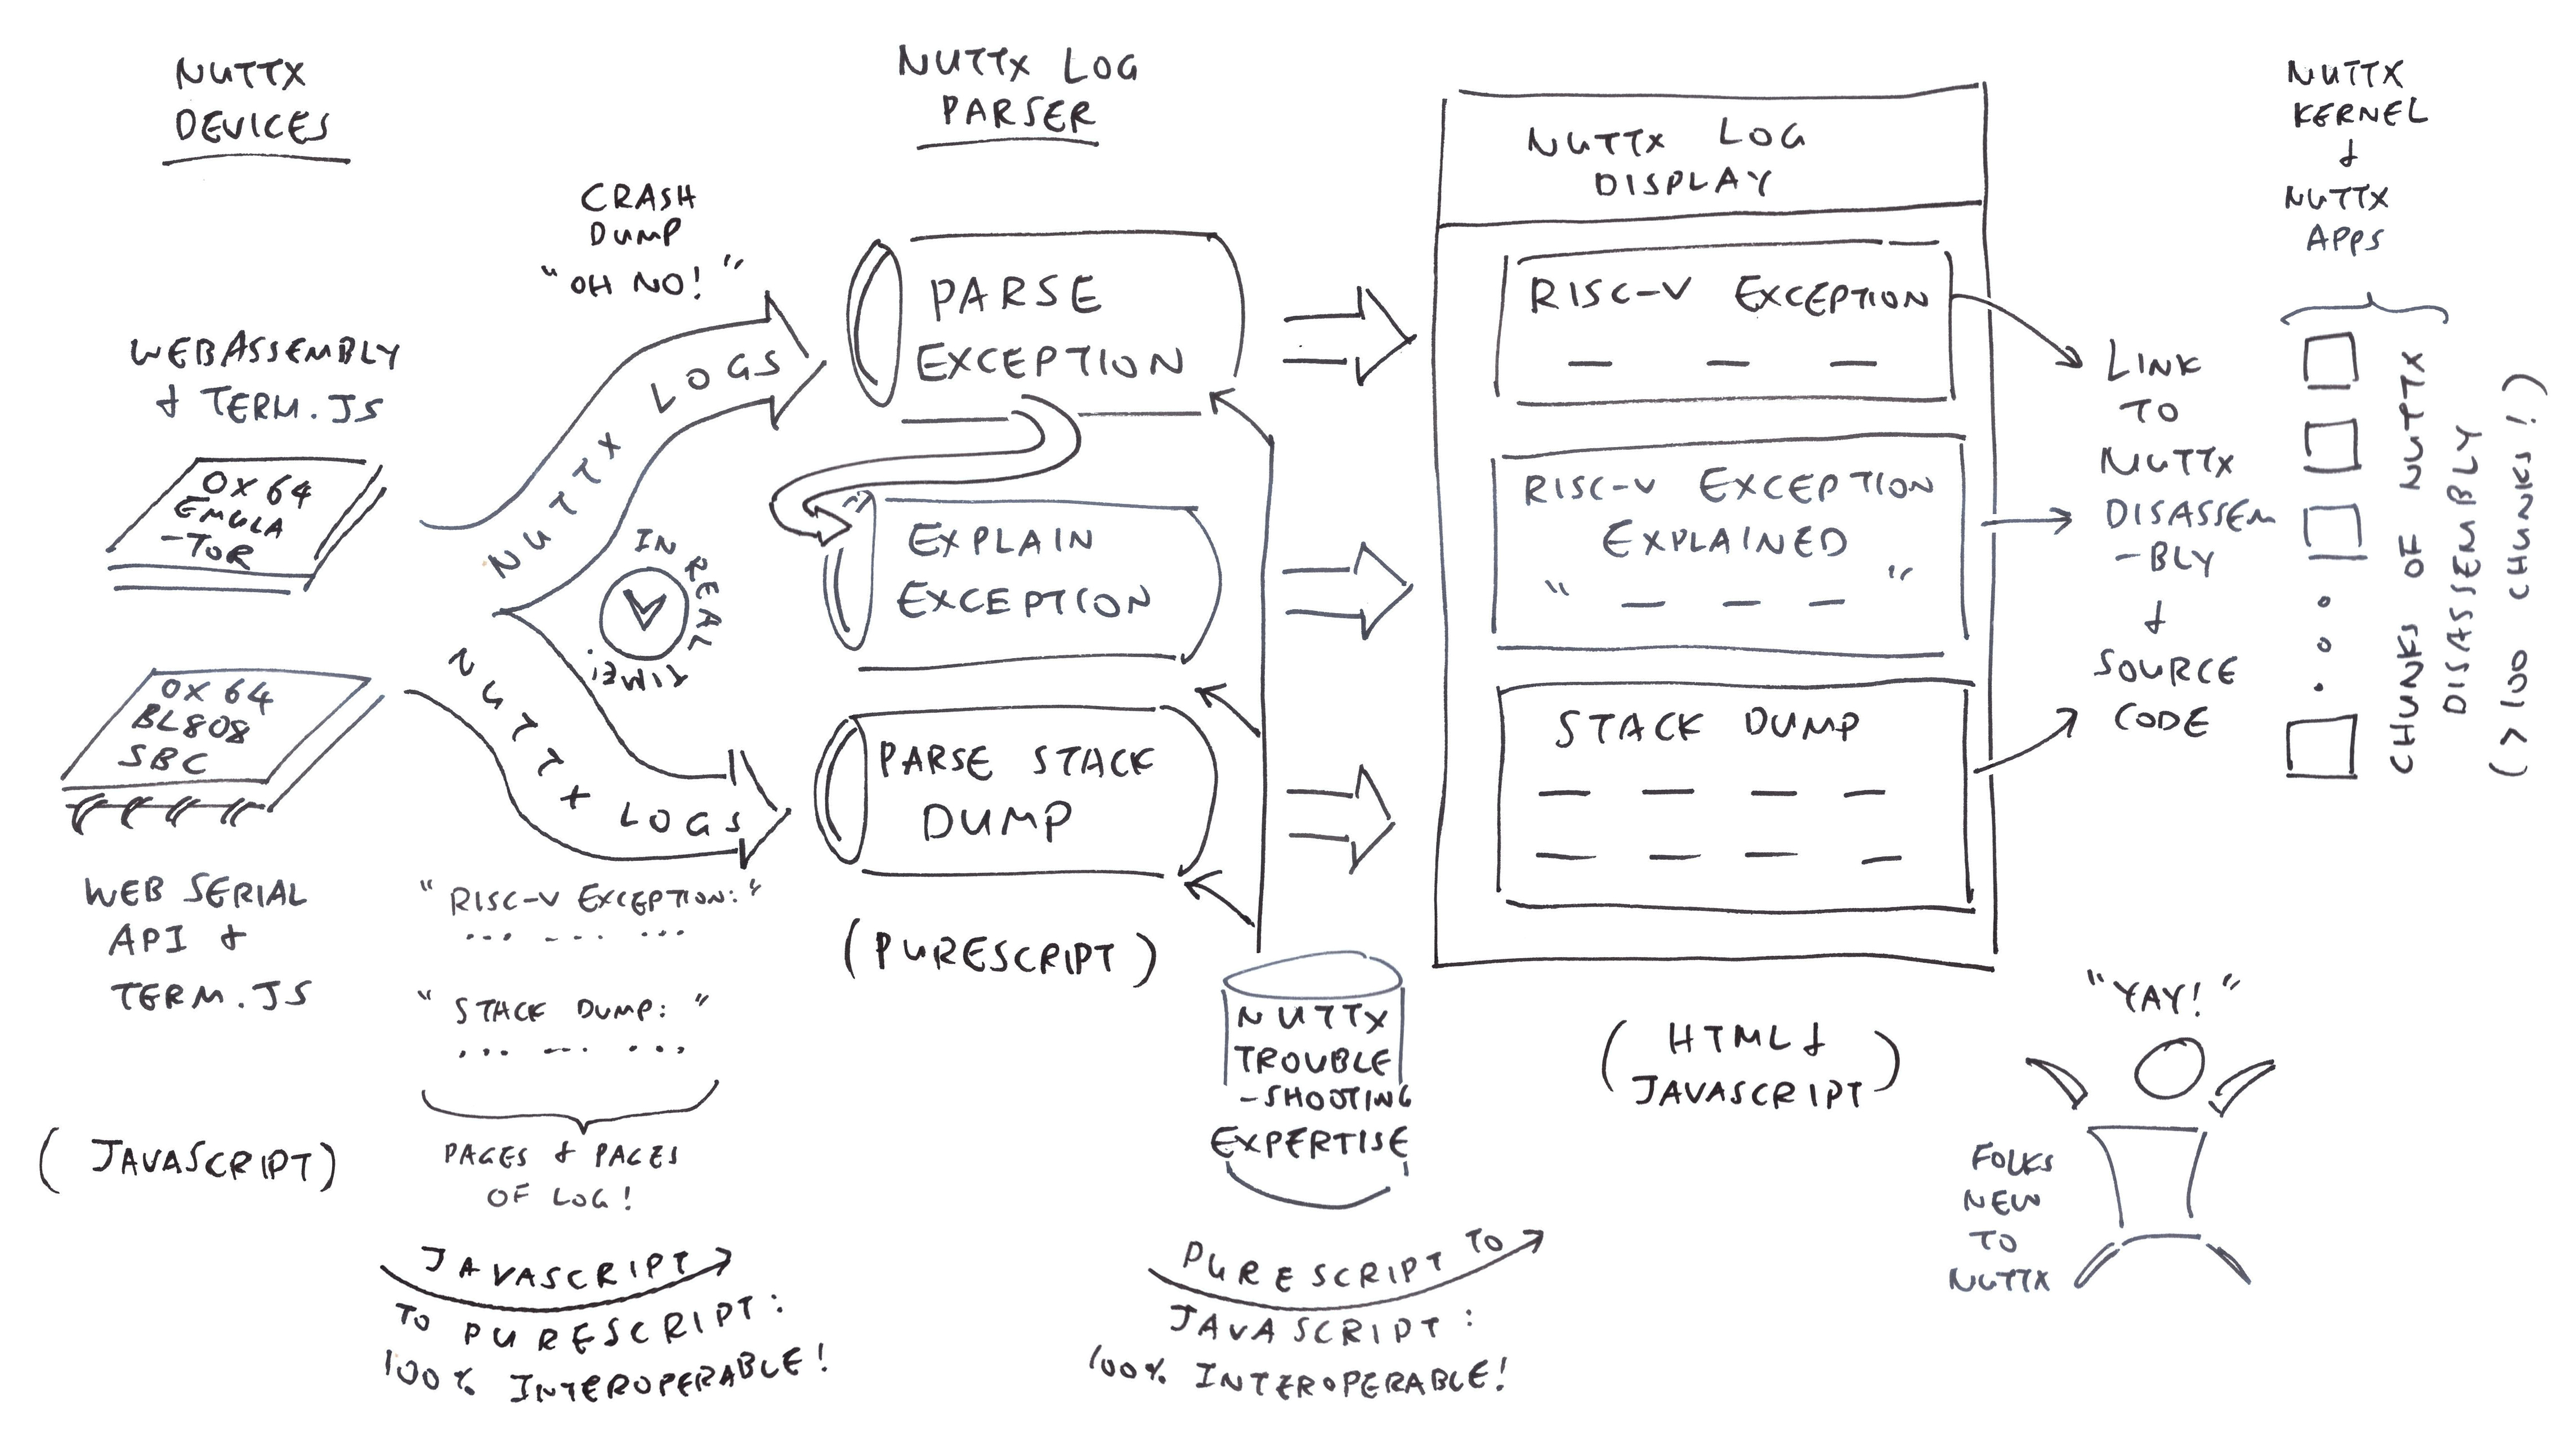 NUTTX
DEVICES
WEBASSEMBLY
& TERM.JS
OX64
EMULA
-TOR
OX64
BL808
SBC
WEB SERIAL
API &
TERM.JS
(JAVASCRIPT)
CRASH
DUMP
"OH NO!"
NUTTX LOGS
IN REAL TIME!
NUTTX LOGS
"RISC-V EXCEPTION:"
... ... ...
"STACK DUMP:"
... ... ...
PAGES & PAGES
OF LOG!
JAVASCRIPT
TO PURESCRIPT:
100% INTEROPERABLE!
NUTTX LOG
PARSER
PARSE
EXCEPTION
EXPLAIN
EXCEPTION
PARSE STACK
DUMP
(PURESCRIPT)
NUTTX
TROUBLE
-SHOOTING
EXPERTISE
PURESCRIPT TO
JAVASCRIPT:
100% INTEROPERABLE!
NUTTX LOG
DISPLAY
RISC-V EXCEPTION
— — —
RISC-V EXCEPTION
EXPLAINED
" — — — "
STACK DUMP
— — — —
— — — —
(HTML &
JAVASCRIPT)
LINK
TO
NUTTX
DISASSEM
-BLY
&
SOURCE
CODE
NUTTX
KERNEL
&
NUTTX
APPS
CHUNKS OF NUTTX
DISASSEMBLY
(>100 CHUNKS!)
"YAY!"
FOLKS
NEW
TO
NUTTX